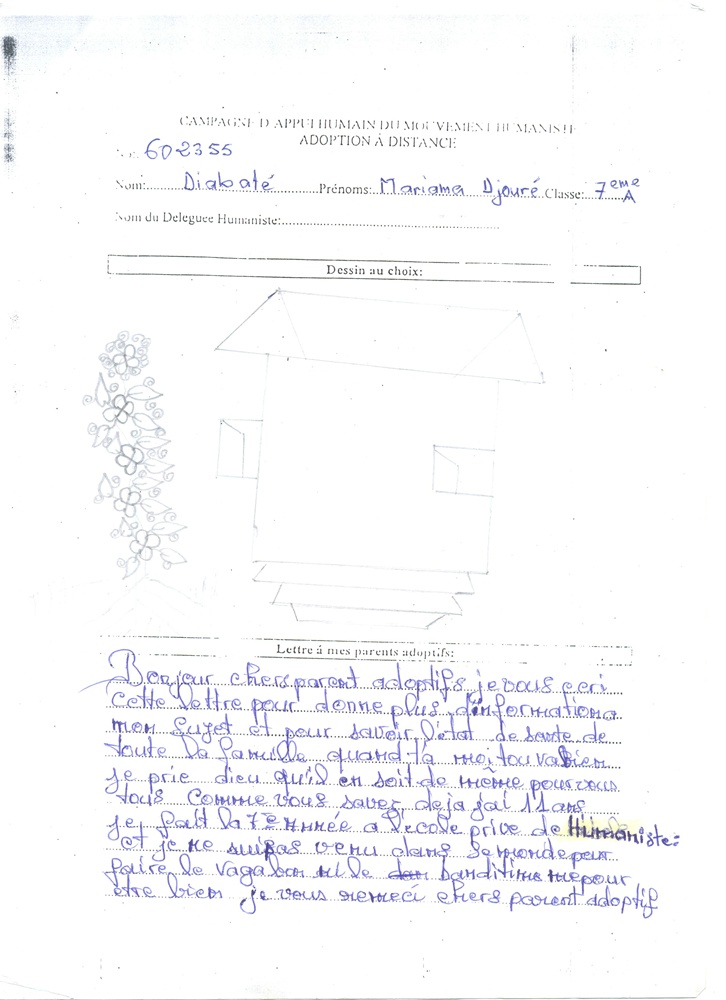 CAMPAGNE D'APPUI HUMAIN DU MOUVEMENT HUMANISTE
ADOPTION À DISTANCE
602355
Nom: Diabaté Prénoms: Mariama Djouré Classe: 7eme A
Nom du Deleguee Humaniste:
Dessin au choix:
Lettre á mes parents adoptifs:
Bonjour chers parent adoptifs je vous ecri
Cette lettre pour donne plus d'informationa
mon Sujet et pour savoir l'état de sante de
toute la famille quand t'à moi tou va bien
je prie dieu qu'il en soit de même pour vous
tous Comme vous savez deja j'ai 11 ans
je fait la 7e année a l'ecole prive de Humaniste:
et je ne suis pas venu dans se monde pour
faire le vagabon ni le banditime pour
etre bien je vous remeci chers parent adoptif